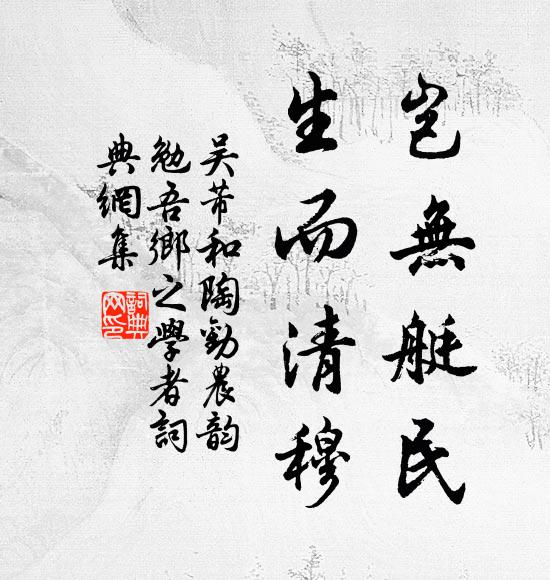 豈無艇民
生而清穆
吳芾和陶勸農韵
勉吾鄉之學者詞
典網集
詞典
网印